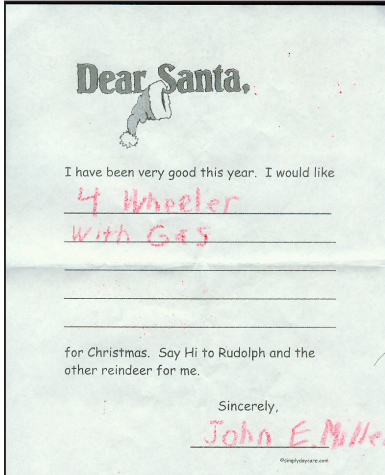 Dear Santa,
I have been very good this year. I would like
4 Wheeler
With Gas
for Christmas. Say Hi to Rudolph and the
other reindeer for me.
Sincerely,
John E. Mille
©simplydaycare.com